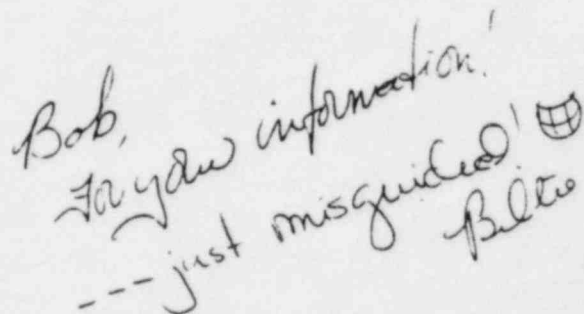 Bob,
For your information!
--- just misguided!